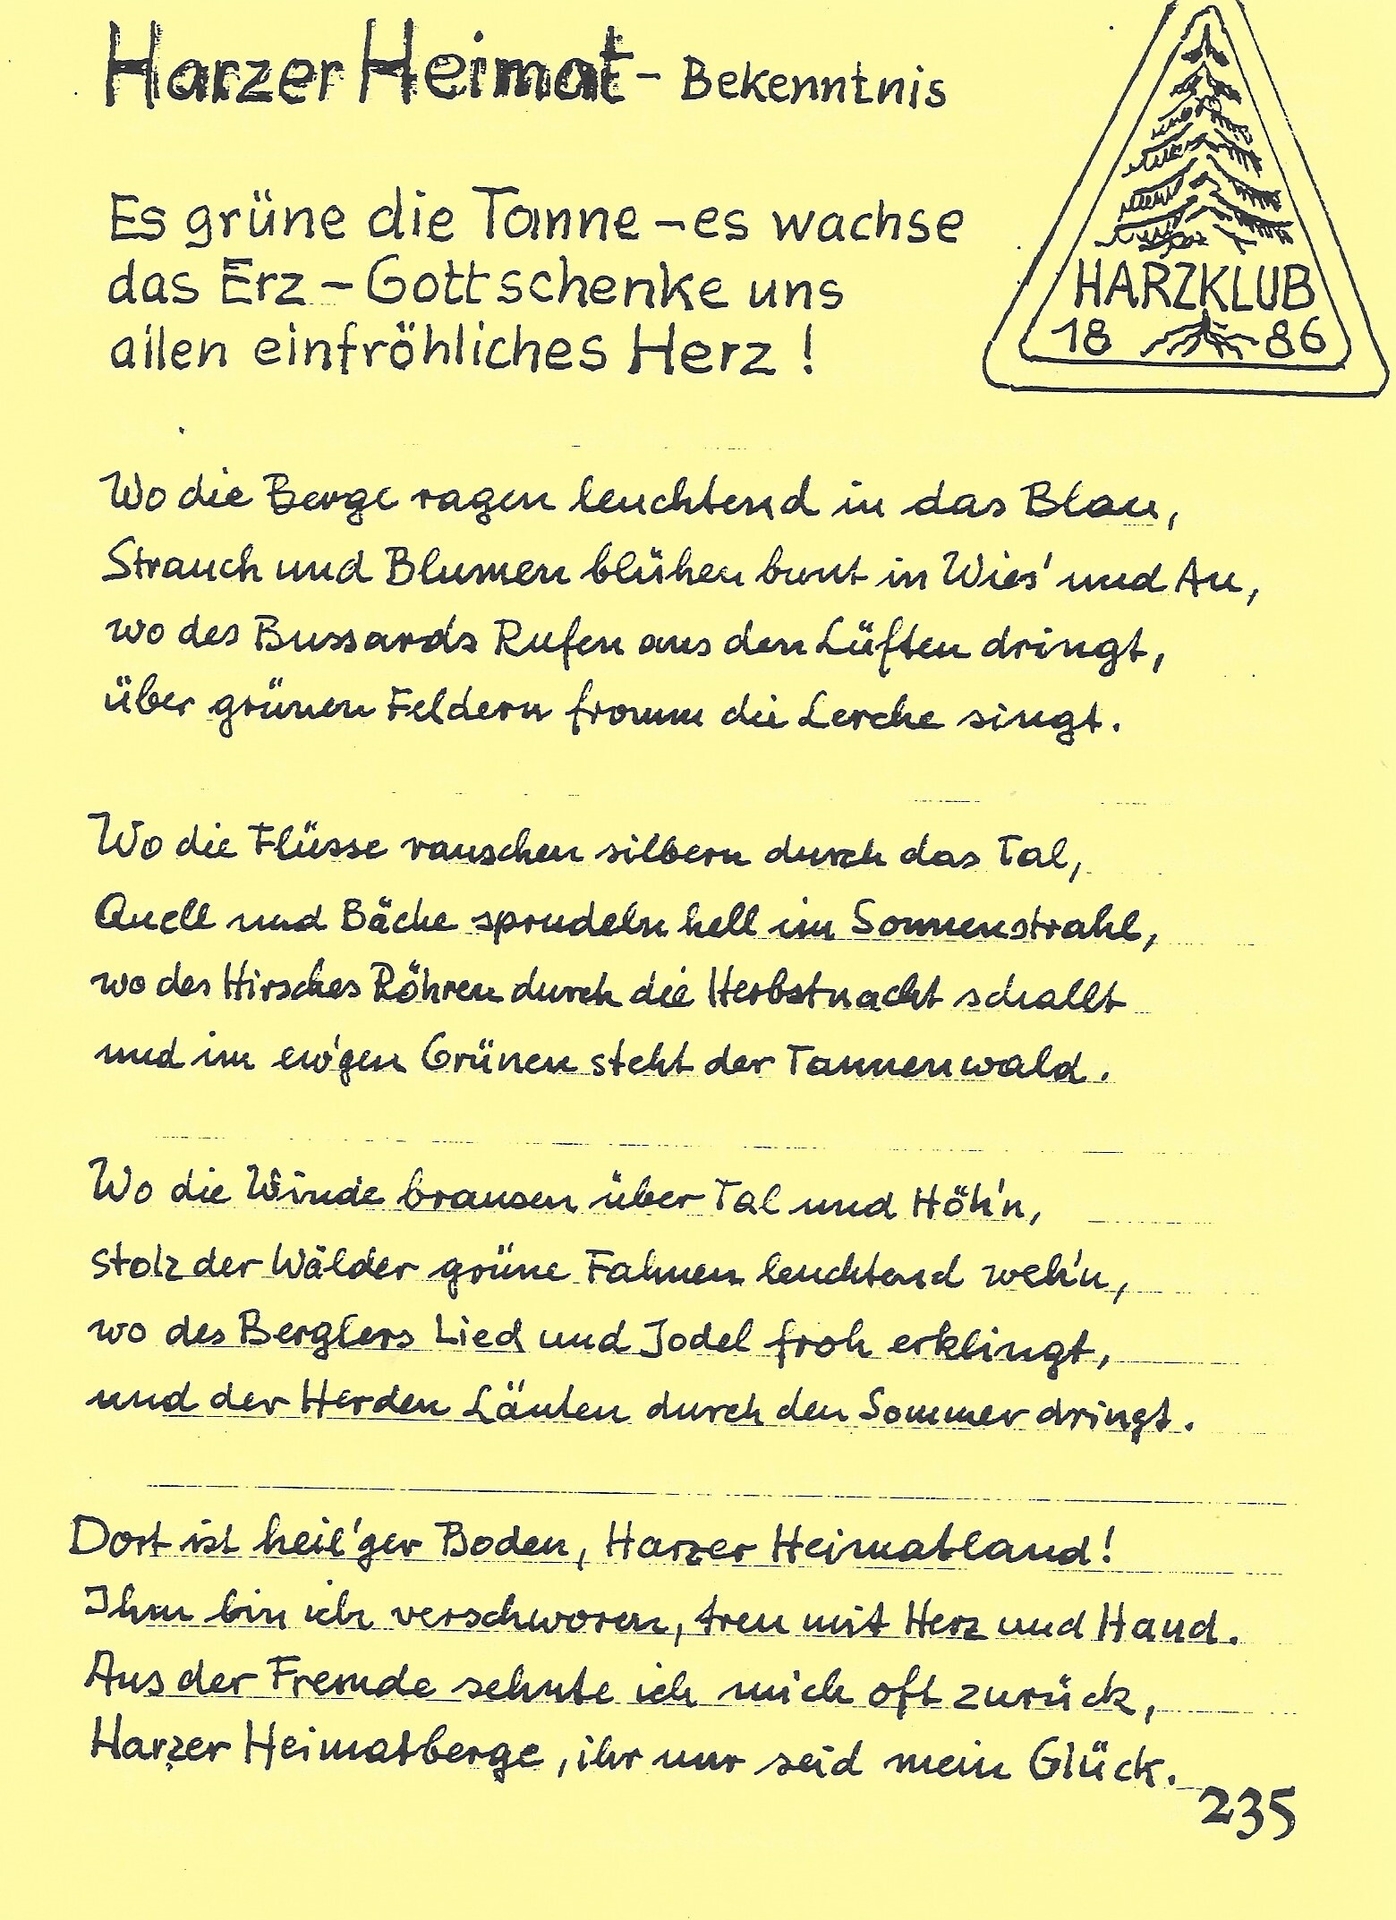 Harzer Heimat - Bekenntnis
Es grüne die Tanne - es wachse
das Erz - Gott schenke uns
allen ein fröhliches Herz !
HARZKLUB
18 86
Wo die Berge ragen leuchtend in das Blau,
Strauch und Blumen blühen bunt in Wies' und Au,
wo des Bussards Rufen aus den Lüften dringt,
über grünen Feldern fromm die Lerche singt.
Wo die Flüsse rauschen silbern durch das Tal,
Quell und Bäche sprudeln hell im Sonnenstrahl,
wo des Hirsches Röhren durch die Herbstnacht schallt
und im ew'gen Grünen steht der Tannenwald.
Wo die Winde brausen über Tal und Höh'n,
stolz der Wälder grüne Fahnen leuchtend weh'n,
wo des Berglers Lied und Jodel froh erklingt,
und der Herden Läuten durch den Sommer dringt.
Dort ist heil'ger Boden, Harzer Heimatland!
Ihm bin ich verschworen, treu mit Herz und Hand.
Aus der Fremde sehnte ich mich oft zurück,
Harzer Heimatberge, ihr nur seid mein Glück.
235